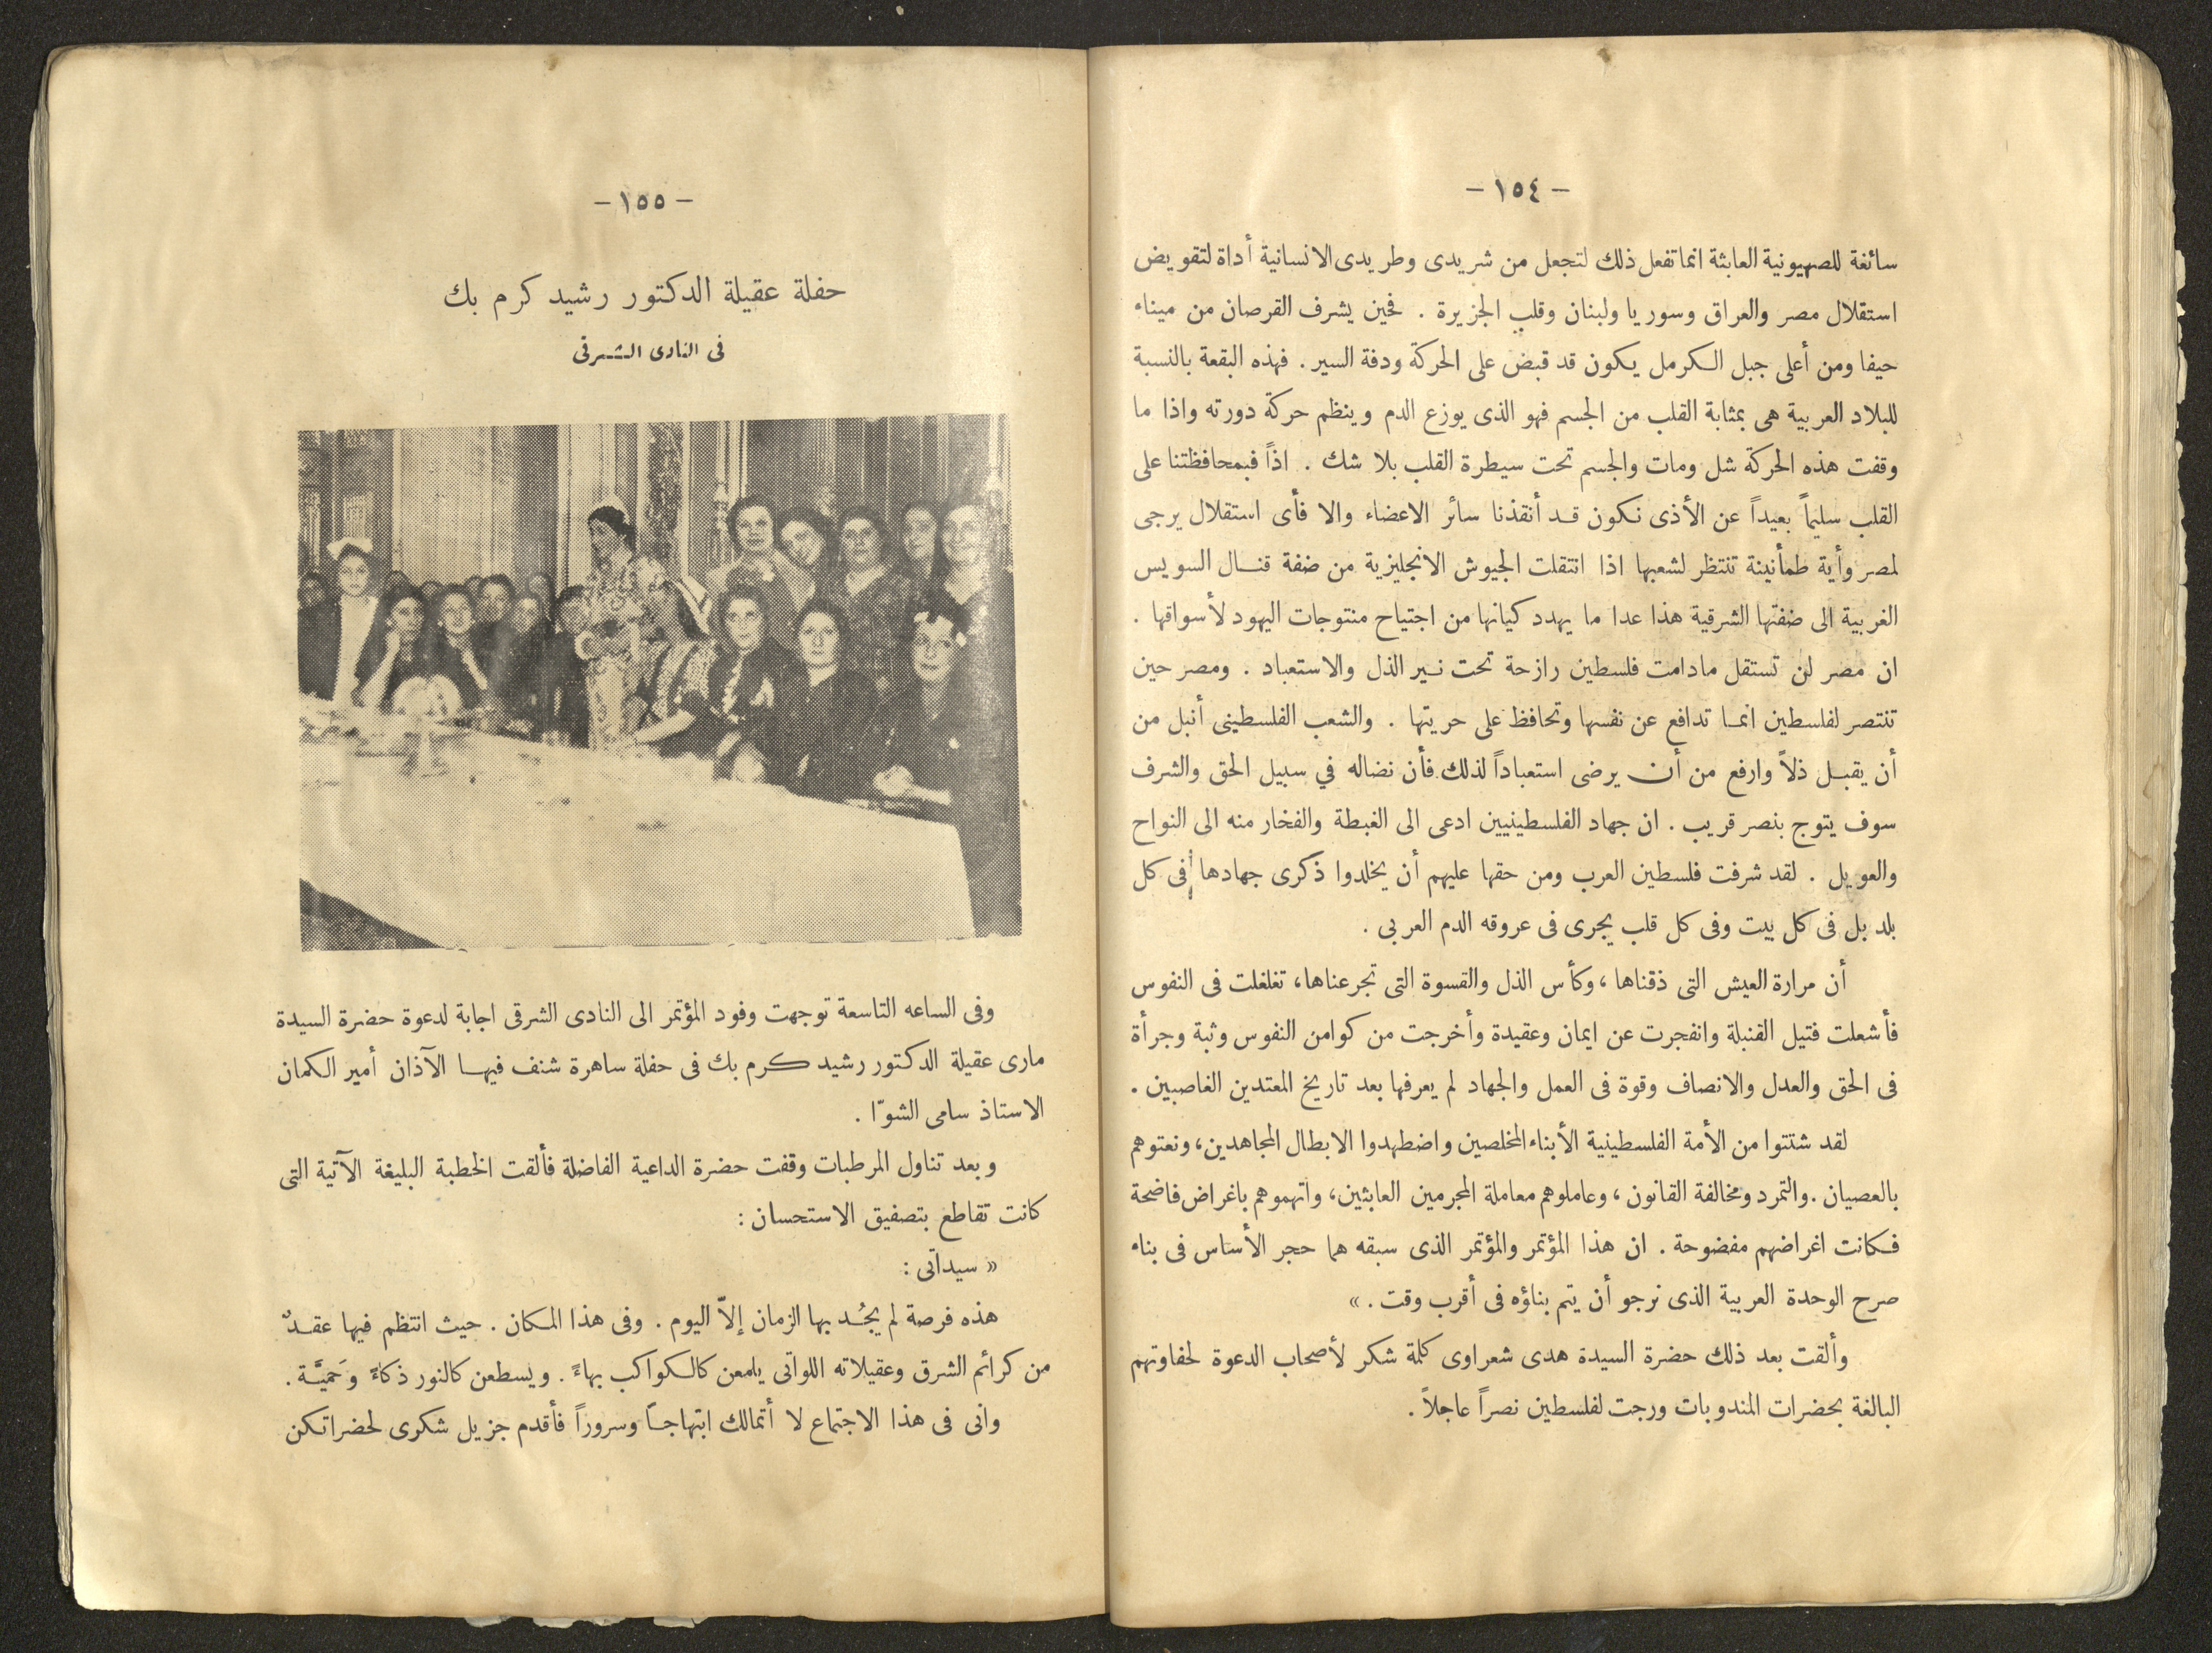 - ١٥٤ -
سائغة للصهيونية العابثة انما تفعل ذلك لتجعل من شريدى وطريدى الانسانية أداة لتقويض
استقلال مصر والعراق وسوريا ولبنان وقلب الجزيرة . فحين يشرف القرصان من ميناء
حيفا ومن أعلى جبل الكرمل يكون قد قبض على الحركة ودفة السير . فهذه البقعة بالنسبة
للبلاد العربية هى بمثابة القلب من الجسم فهو الذى يوزع الدم وينظم حركة دورته واذا ما
وقفت هذه الحركة شل ومات والجسم تحت سيطرة القلب بلا شك . اذاً فبمحافظتنا على
القلب سليماً بعيداً عن الأذى نكون قد أنقذنا سائر الاعضاء والا فأى استقلال يرجى
لمصر وأية طمأنينة تنتظر لشعبها اذا انتقلت الجيوش الانجليزية من ضفة قنال السويس
الغربية الى ضفتها الشرقية هذا عدا ما يهدد كيانها من اجتياح منتوجات اليهود لأسواقها .
ان مصر لن تستقل مادامت فلسطين رازحة تحت نير الذل والاستعباد . ومصر حين
تنتصر لفلسطين انما تدافع عن نفسها وتحافظ على حريتها . والشعب الفلسطينى أنبل من
أن يقبل ذلاً وارفع من أن يرضى استعباداً لذلك فأن نضاله في سبيل الحق والشرف
سوف يتوج بنصر قريب . ان جهاد الفلسطينيين ادعى الى الغبطة والفخار منه الى النواح
والعويل . لقد شرفت فلسطين العرب ومن حقها عليهم أن يخلدوا ذكرى جهادها فى كل
بلد بل فى كل بيت وفى كل قلب يجرى فى عروقه الدم العربى .
أن مرارة العيش التى ذقناها ، وكأس الذل والقسوة التى تجرعناها ، تغلغلت فى النفوس
فأشعلت فتيل القنبلة وانفجرت عن ايمان وعقيدة وأخرجت من كوامن النفوس وثبة وجرأة
فى الحق والعدل والانصاف وقوة فى العمل والجهاد لم يعرفها بعد تاريخ المعتدين الغاصبين .
لقد شتتوا من الأمة الفلسطينية الأبناء المخلصين واضطهدوا الابطال المجاهدين ، ونعتوهم
بالعصيان . والتمرد ومخالفة القانون ، وعاملوهم معاملة المجرمين العابثين ، واتهموهم باغراض فاضحة
فكانت اغراضهم مفضوحة . ان هذا المؤتمر والمؤتمر الذى سبقه هما حجر الأساس فى بناء
صرح الوحدة العربية الذى نرجو أن يتم بناؤه فى أقرب وقت . »
وألقت بعد ذلك حضرة السيدة هدى شعراوى كلمة شكر لأصحاب الدعوة لحفاوتهم
البالغة بحضرات المندوبات ورجت لفلسطين نصراً عاجلاً .
- ١٥٥ -
حفلة عقيلة الدكتور رشيد كرم بك
فى النادى الشرقى
وفى الساعه التاسعة توجهت وفود المؤتمر الى النادى الشرقى اجابة لدعوة حضرة السيدة
مارى عقيلة الدكتور رشيد كرم بك فى حفلة ساهرة شنف فيها الآذان أمير الكمان
الاستاذ سامى الشوّا .
وبعد تناول المرطبات وقفت حضرة الداعية الفاضلة فألقت الخطبة البليغة الآتية التى
كانت تقاطع بتصفيق الاستحسان :
« سيداتى :
هذه فرصة لم يجُد بها الزمان إلاّ اليوم . وفى هذا المكان . حيث انتظم فيها عقدٌ
من كرائم الشرق وعقيلاته اللواتى يلمعن كالكواكب بهاءً . ويسطعن كالنور ذكاءً وَحميَّة .
وانى فى هذا الاجتماع لا أتمالك ابتهاجاً وسروراً فأقدم جزيل شكرى لحضراتكن